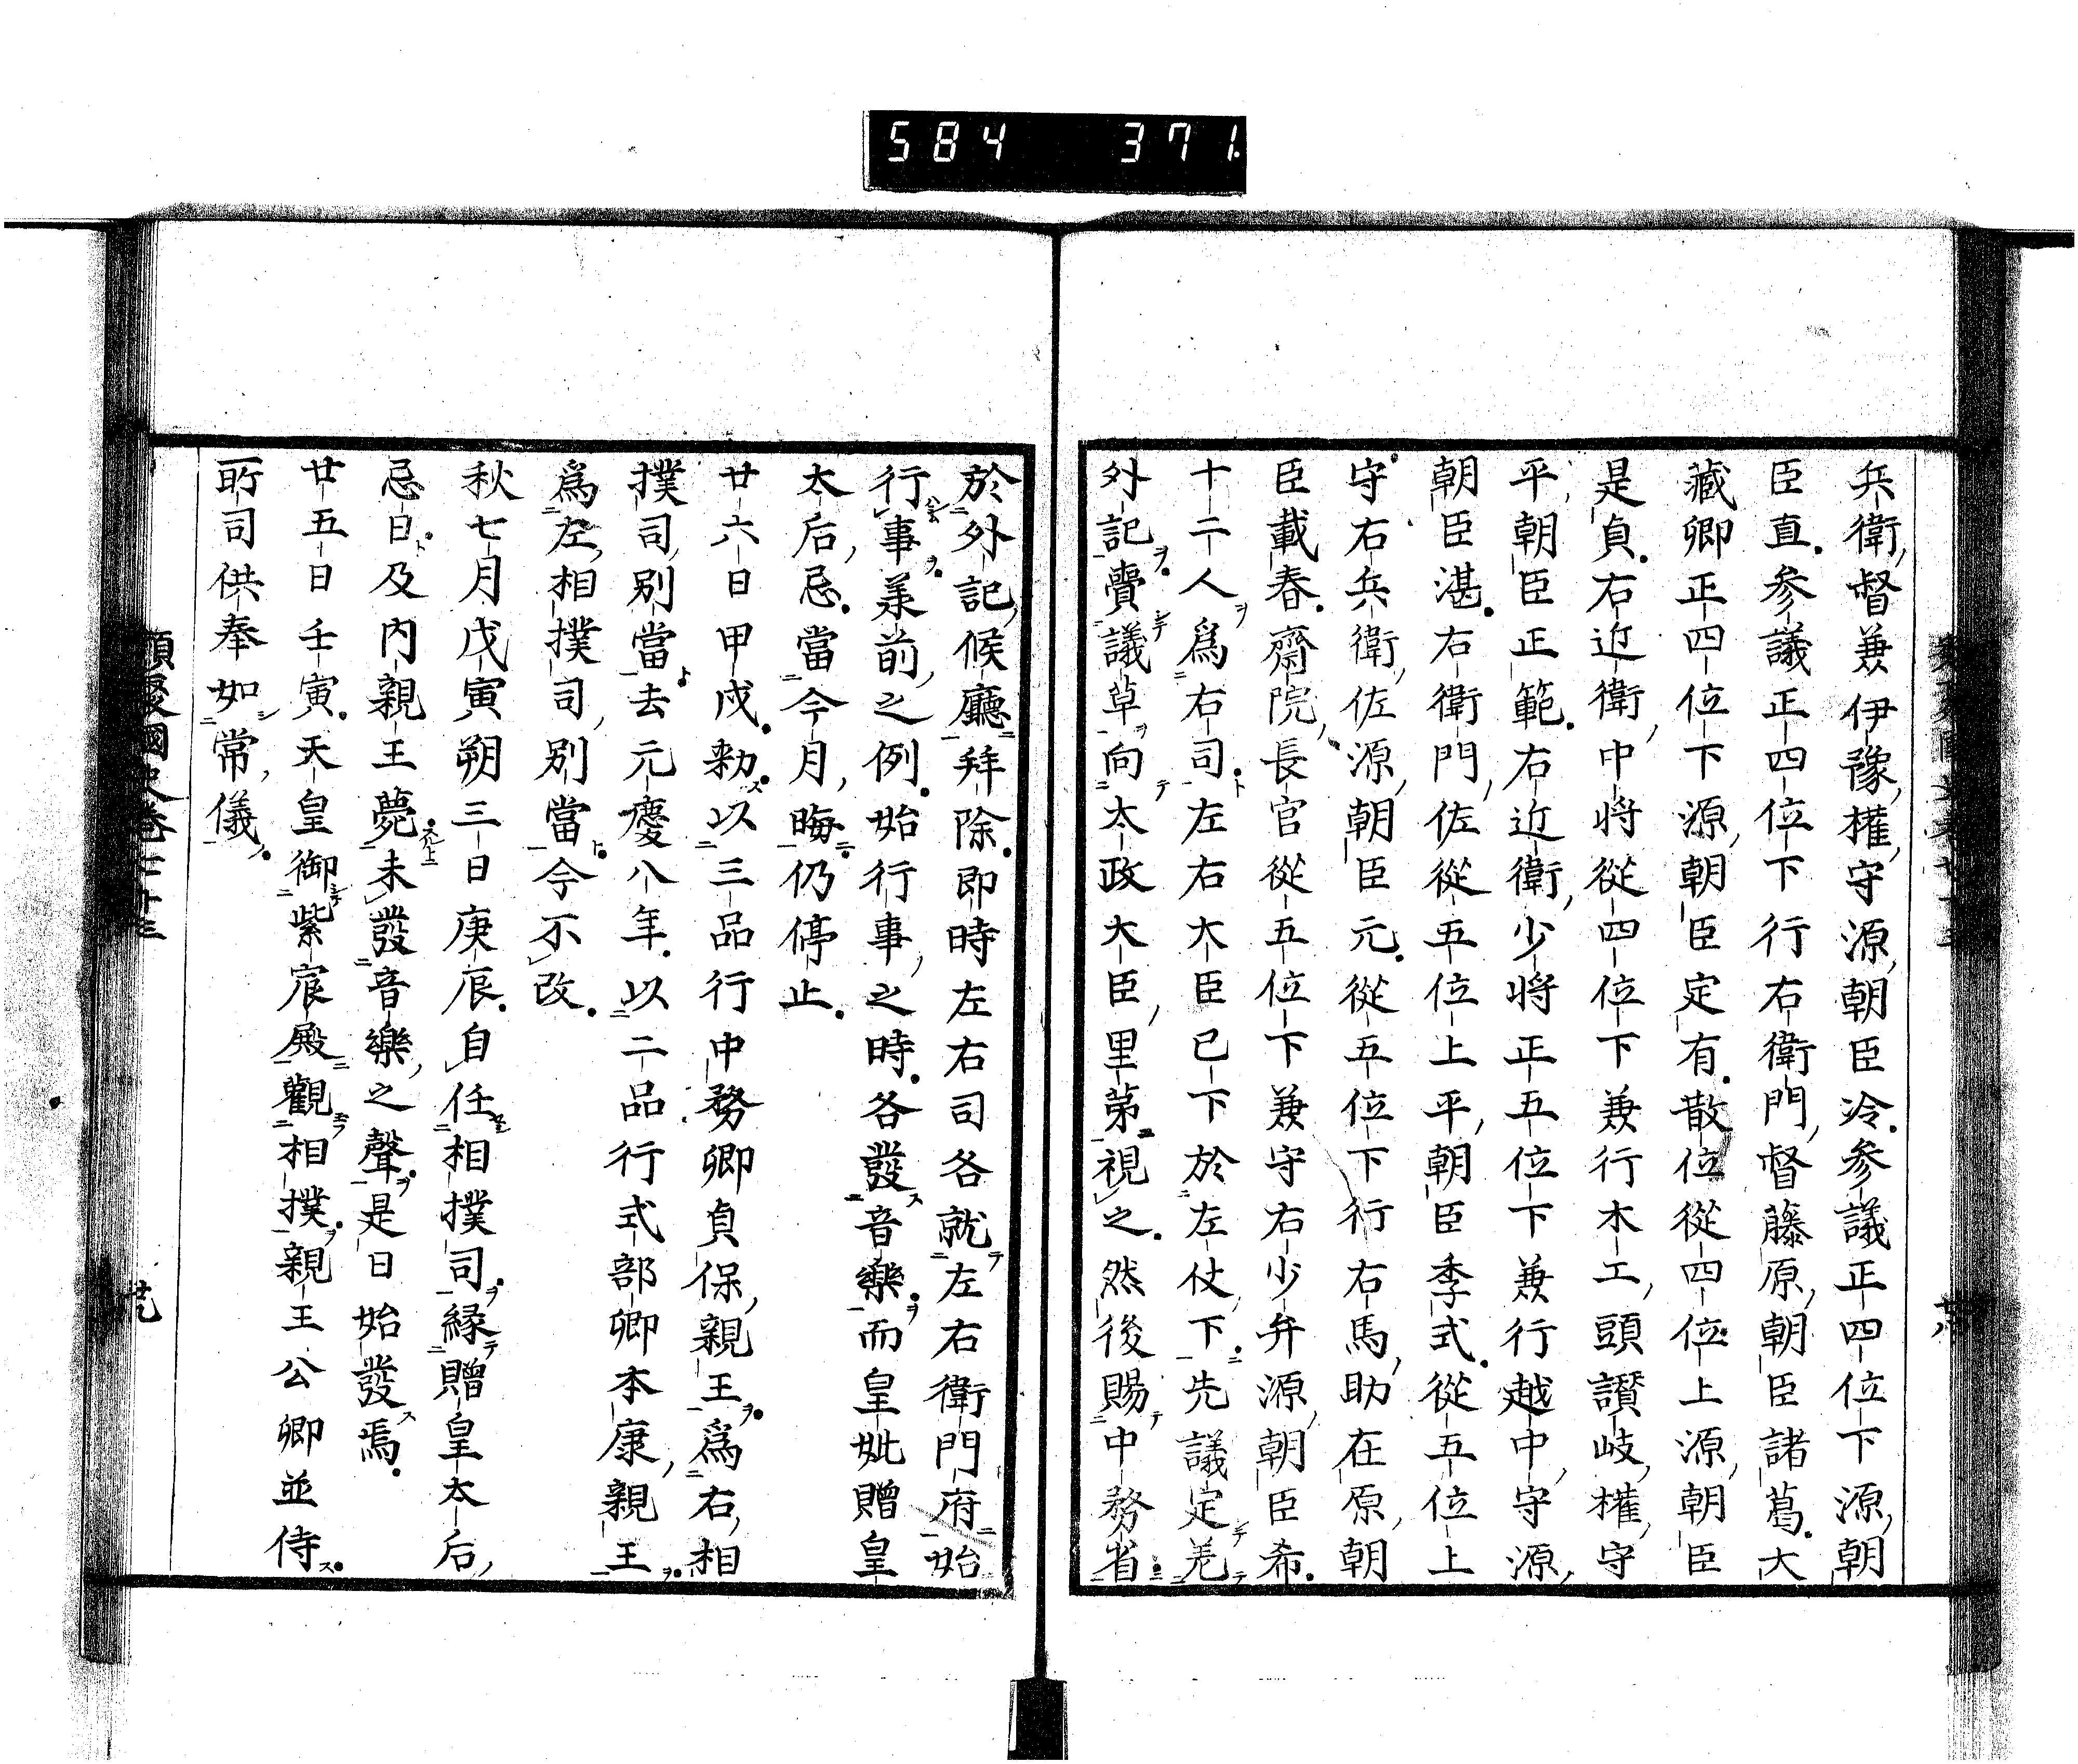 584 371.
兵衛督兼伊豫權守源朝臣冷参議正四位下源朝
臣直参議正四位下行右衛門督藤原朝臣諸葛大
藏卿正四位下源朝臣定有散位從四位上源朝臣
是貞右近衛中将從四位下兼行木工頭讃岐權守
平朝臣正範右近衛少将正五位下兼行越中守源
朝臣湛右衛門佐從五位上平朝臣季式從五位上
守右兵衛佐源朝臣元從五位下行右馬助在原朝
臣載春齋院長官從五位下兼守右少弁源朝臣希
十二人爲右司左右大臣已下於左仗下先議定差
外記賷議草向太政大臣里第視之然後賜中務省
於外記候廳拜除即時左右司各就左右衛門府始
行事兼前之例始行事之時各發音樂而皇妣贈皇
太后忌當今月晦仍停止
廿六日甲戌勅以三品行中務卿貞保親王爲右相
撲司別當去元慶八年以二品行式部卿本康親王
爲左相撲司別當今不改
秋七月戊寅朔三日庚辰自任相撲司緣贈皇太后
忌日及内親王薨未發音樂之聲是日始發焉
廿五日壬寅天皇御紫宸殿觀相撲親王公卿並侍
所司供奉如常儀
類聚國史卷七十三
廿九